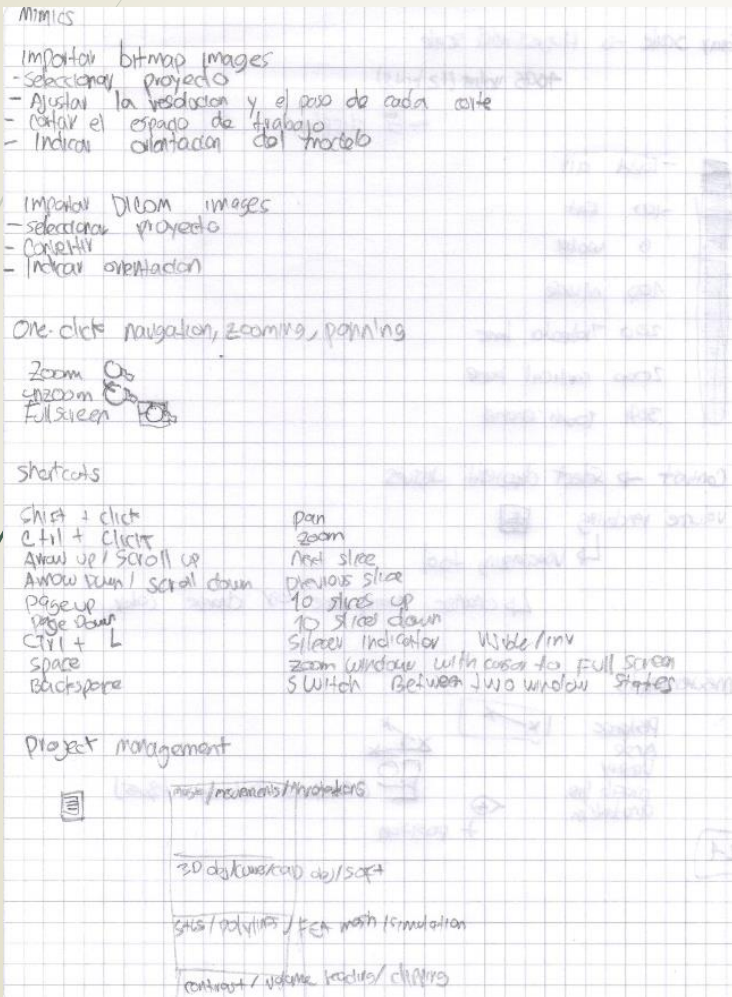 Mimics
Importar bitmap images
- Seleccionar proyecto
- Ajustar la resolucion y el paso de cada corte
- cortar el espacio de trabajo
- Indicar orientacion del modelo
Importar DICOM images
- seleccionar proyecto
- Convertir
- Indicar orientacion
One-click navigation, zooming, panning
Zoom
unzoom
Full screen
shortcuts
Shift + click pan
Ctrl + Click zoom
Arrow up / Scroll up Next slice
Arrow Down / scroll down previous slice
page up 10 slices up
page Down 10 slices down
Ctrl + L indicator visible/inv
space zoom window with cursor to Full screen
Backspace Switch Between two window States
project management
mask/measurments/Annotations
3D obj/ CAD obj/soft
STLs / polylines / FEA mesh / simulation
contrast / volume / clipping